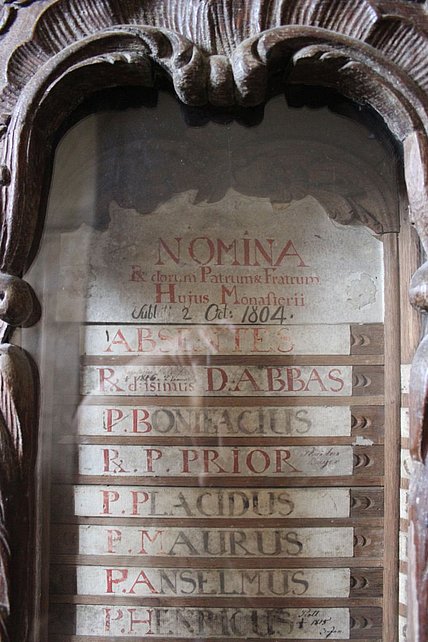 NOMINA
Rdorum Patrum & Fratrum
Hujus Monasterii
2 Oct: 1804.
ABSENTES
R. dissimus D. ABBAS
P. BONIFACIUS
R. P. PRIOR
P. PLACIDUS
P. MAURUS
P. ANSELMUS
P. HENRICUS